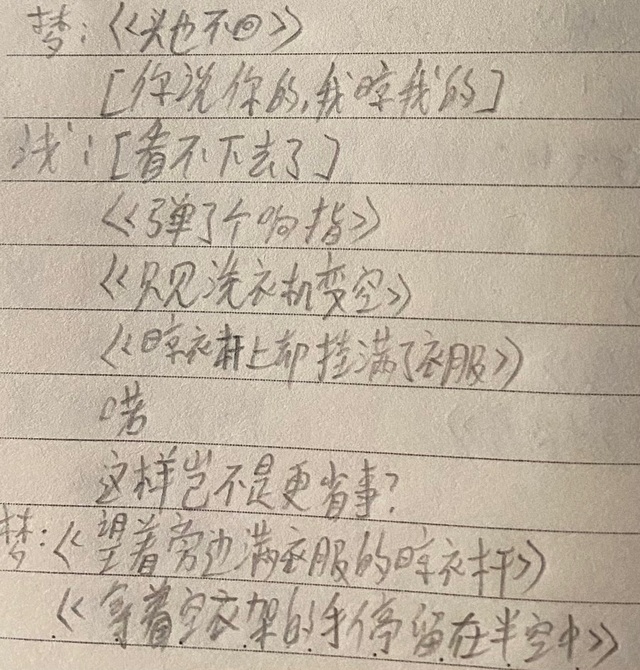 梦:《头也不回》
[你说你的,我晾我的]
浅:[看不下去了]
《弹了个响指》
《只见洗衣机变空》
《晾衣杆上却挂满了衣服》
喏
这样岂不是更省事?
梦:《望着旁边满衣服的晾衣杆》
《拿着空衣架的手停留在半空中》